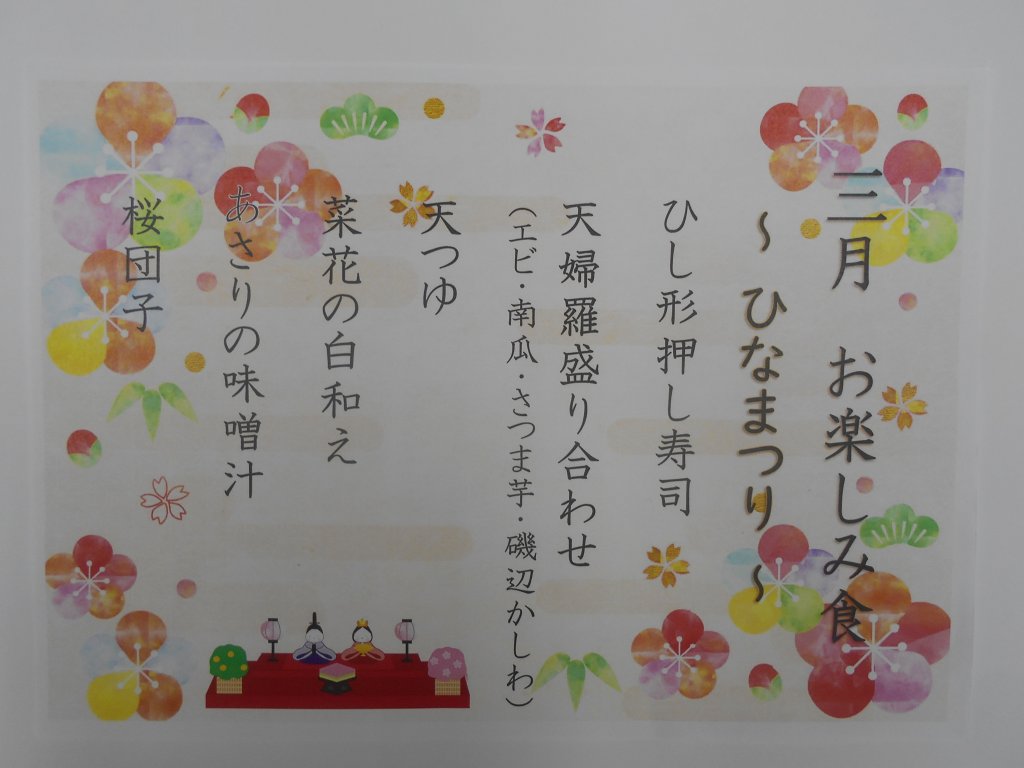 三月　お楽しみ食
～　ひなまつり　～
ひし形押し寿司
天婦羅盛り合わせ
（エビ・南瓜・さつま芋・磯辺かしわ）
天つゆ
菜花の白和え
あさりの味噌汁
桜団子